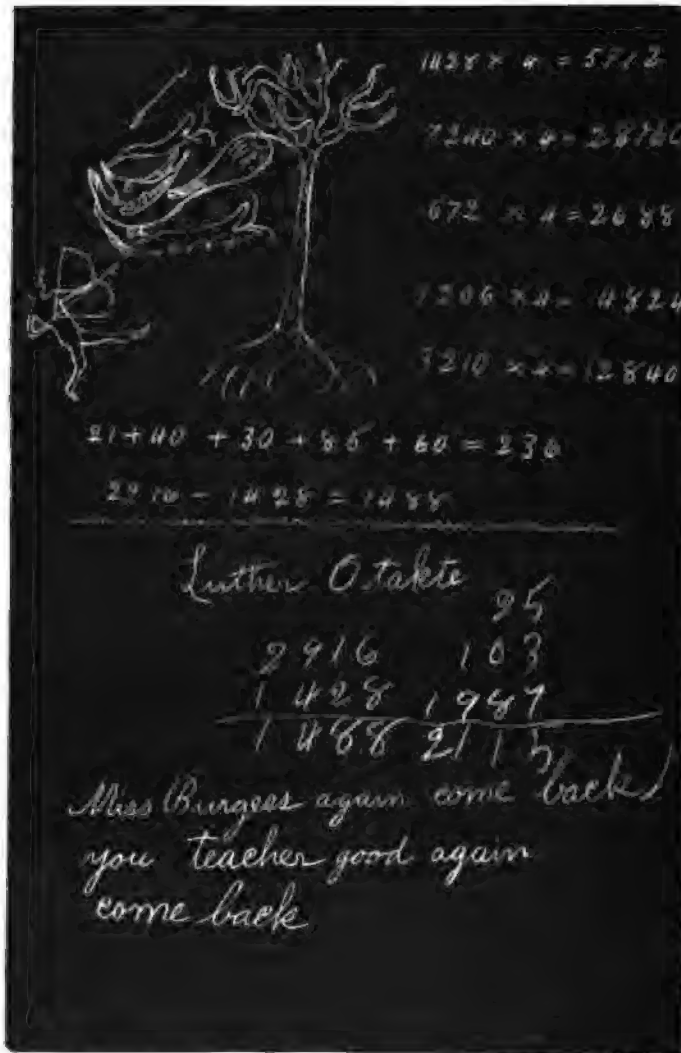 1428 × 4 = 5712
7240 × 4 = 28960
672 × 4 = 2688
1206 × 4 = 4824
3210 × 4 = 12840
21 + 40 + 30 + 85 + 60 = 236
2916 - 1428 = 1488
Luther Otakte
25
2916 103
1428 1987
1488 2115
Miss Burgees again come back
you teacher good again
come back